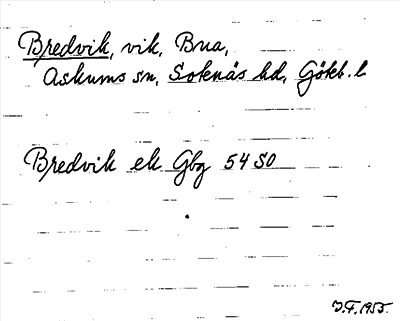 Bredvik, vik, Bua,
Askums sn, Sotenäs hd, Göteb. l
Bredvik ek Gbg 54 SO
J.F. 1955.